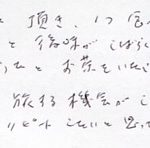 と頂き、いつ
と後味がしばらく
っとお茶をいただ
旅する機会がこ
リピートしたいと思っ